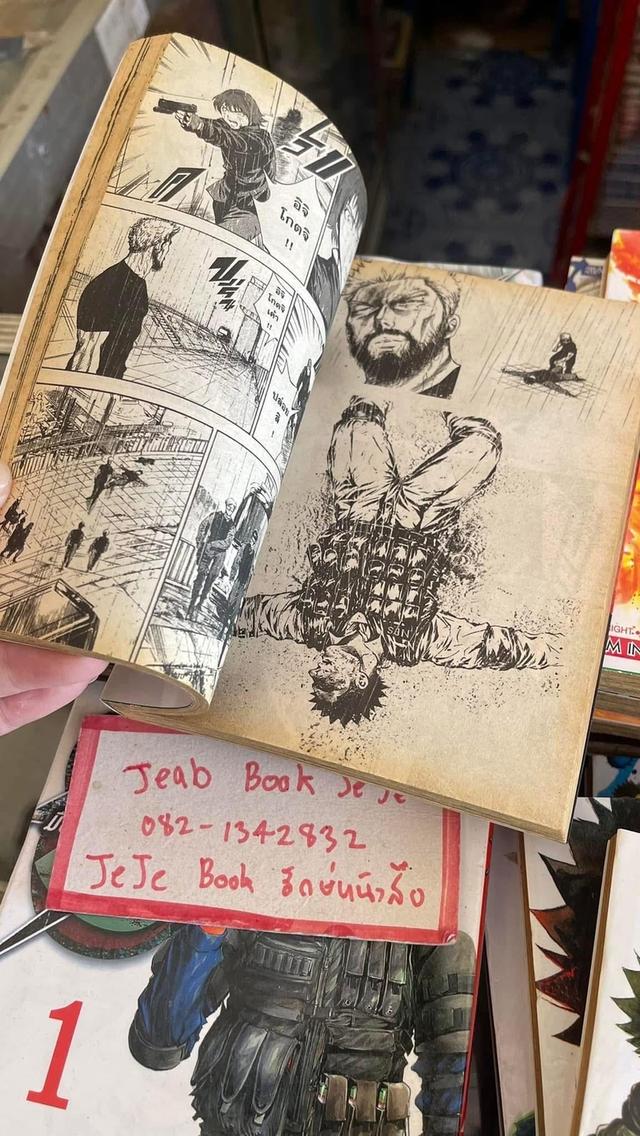 อิจิ
โกดจิ
!!
อิจิ
โกดจิ
เต๋า !!
ปล่อย
สิ !
SUN
IGHT
M IN
Jeab Book JeJe
082-1342832
JeJe Book รักษ์หนังสือ
1